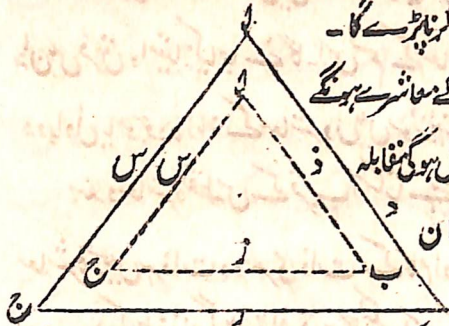 کرنا پڑے گا۔
معاشرے ہونگے
ہوگی مقابلہ
ل
ل
س
س
ذ
د
ن
ج
ر
ب
ج
ر